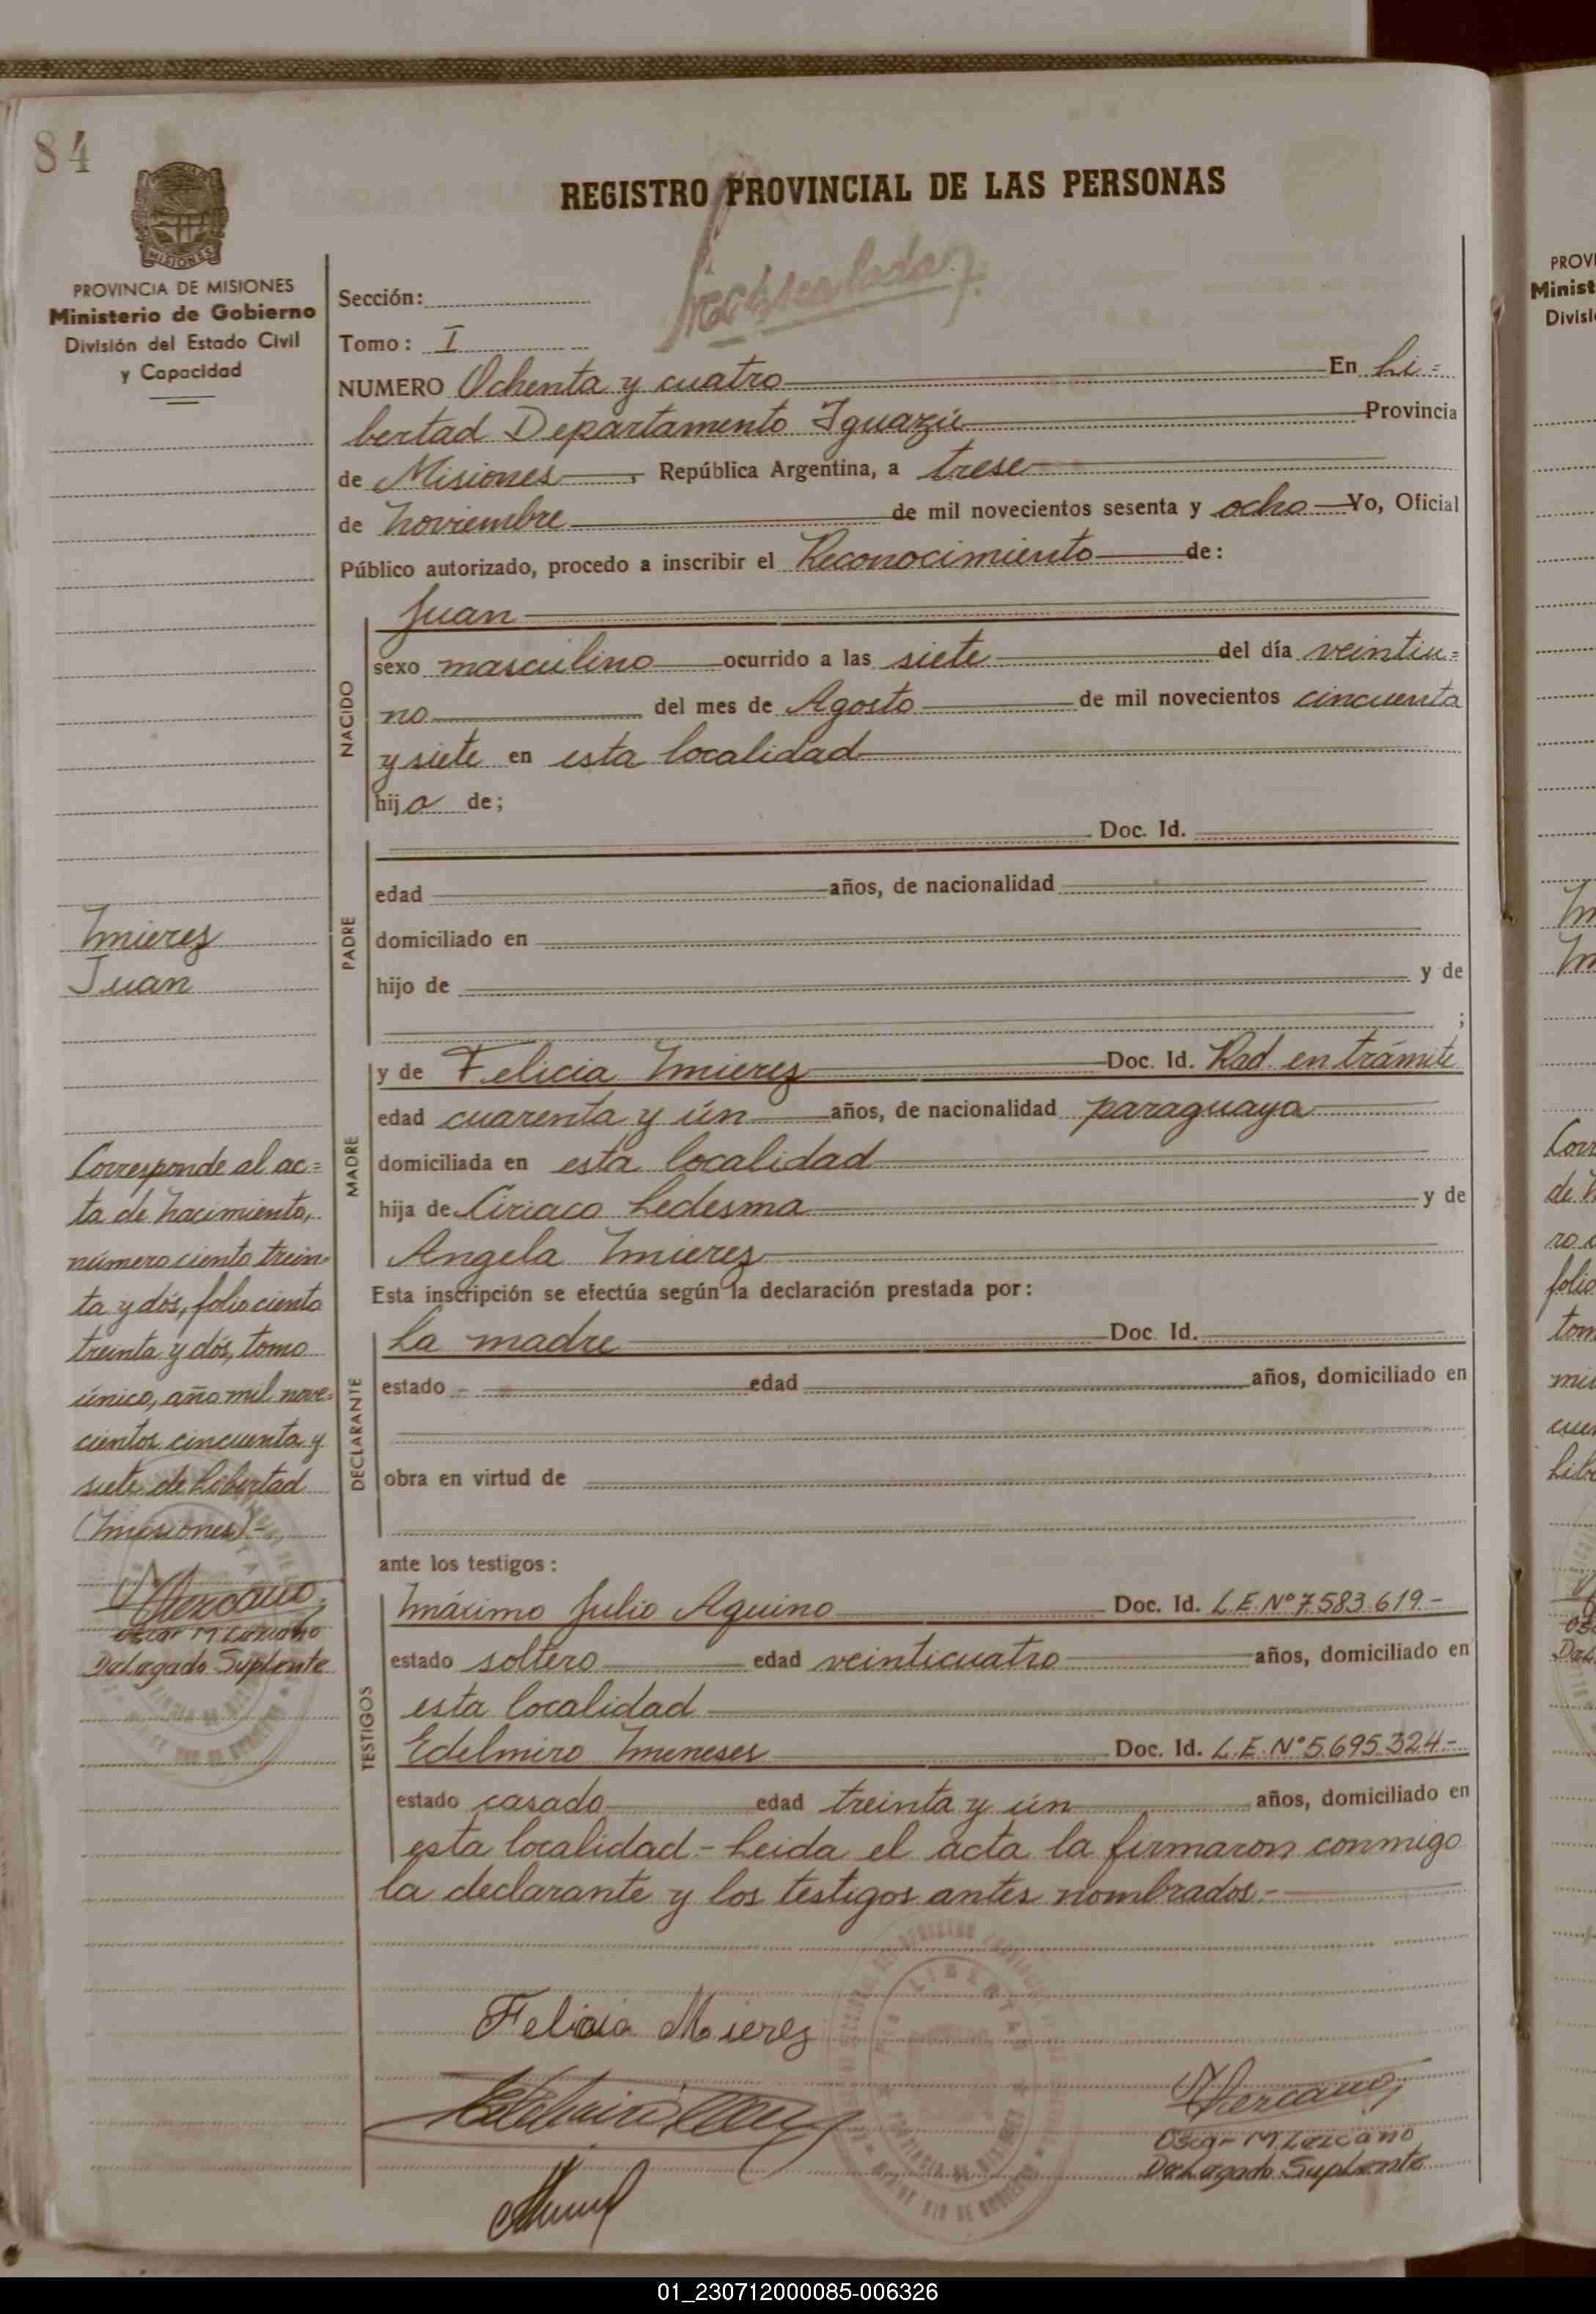 84
MISIONES
PROVINCIA DE MISIONES
Ministerio de Gobierno
División del Estado Civil
y Capacidad
REGISTRO PROVINCIAL DE LAS PERSONAS
Sección:
Tomo: I
NUMERO Ochenta y cuatro En Li=
bertad Departamento Iguazú Provincia
de Misiones, República Argentina, a trese
de Noviembre de mil novecientos sesenta y ocho Yo, Oficial
Público autorizado, procedo a inscribir el Reconocimiento de:
NACIDO
Juan
sexo masculino ocurrido a las siete del día veintiu=
no del mes de Agosto de mil novecientos cincuenta
y siete en esta localidad
hijo de;
PADRE
Doc. Id.
edad años, de nacionalidad
domiciliado en
hijo de y de
;
Mierez
Juan
MADRE
y de Felicia Mierez Doc. Id. Rad. en trámite
edad cuarenta y ún años, de nacionalidad paraguaya
domiciliada en esta localidad
hija de Ciriaco Ledesma y de
Angela Mierez
Esta inscripción se efectúa según la declaración prestada por:
DECLARANTE
La madre Doc. Id.
estado edad años, domiciliado en
obra en virtud de
Corresponde al ac=
ta de Nacimiento,
número ciento trein=
ta y dós, folio ciento
treinta y dós, tomo
único, año mil nove=
cientos cincuenta y
siete de Libertad
(Misiones)-
Oscar M Lezcano
Delegado Suplente
ante los testigos:
TESTIGOS
Máximo Julio Aquino Doc. Id. L.E. Nº 7.583.619.-
estado soltero edad veinticuatro años, domiciliado en
esta localidad
Edelmiro Meneses Doc. Id. L.E. Nº 5.695.324.-
estado casado edad treinta y ún años, domiciliado en
esta localidad.- Leida el acta la firmaron conmigo
la declarante y los testigos antes nombrados.-
Felicia Mierez
LIBERTAD
Oscar M Lezcano
Delegado Suplente
01_230712000085-006326